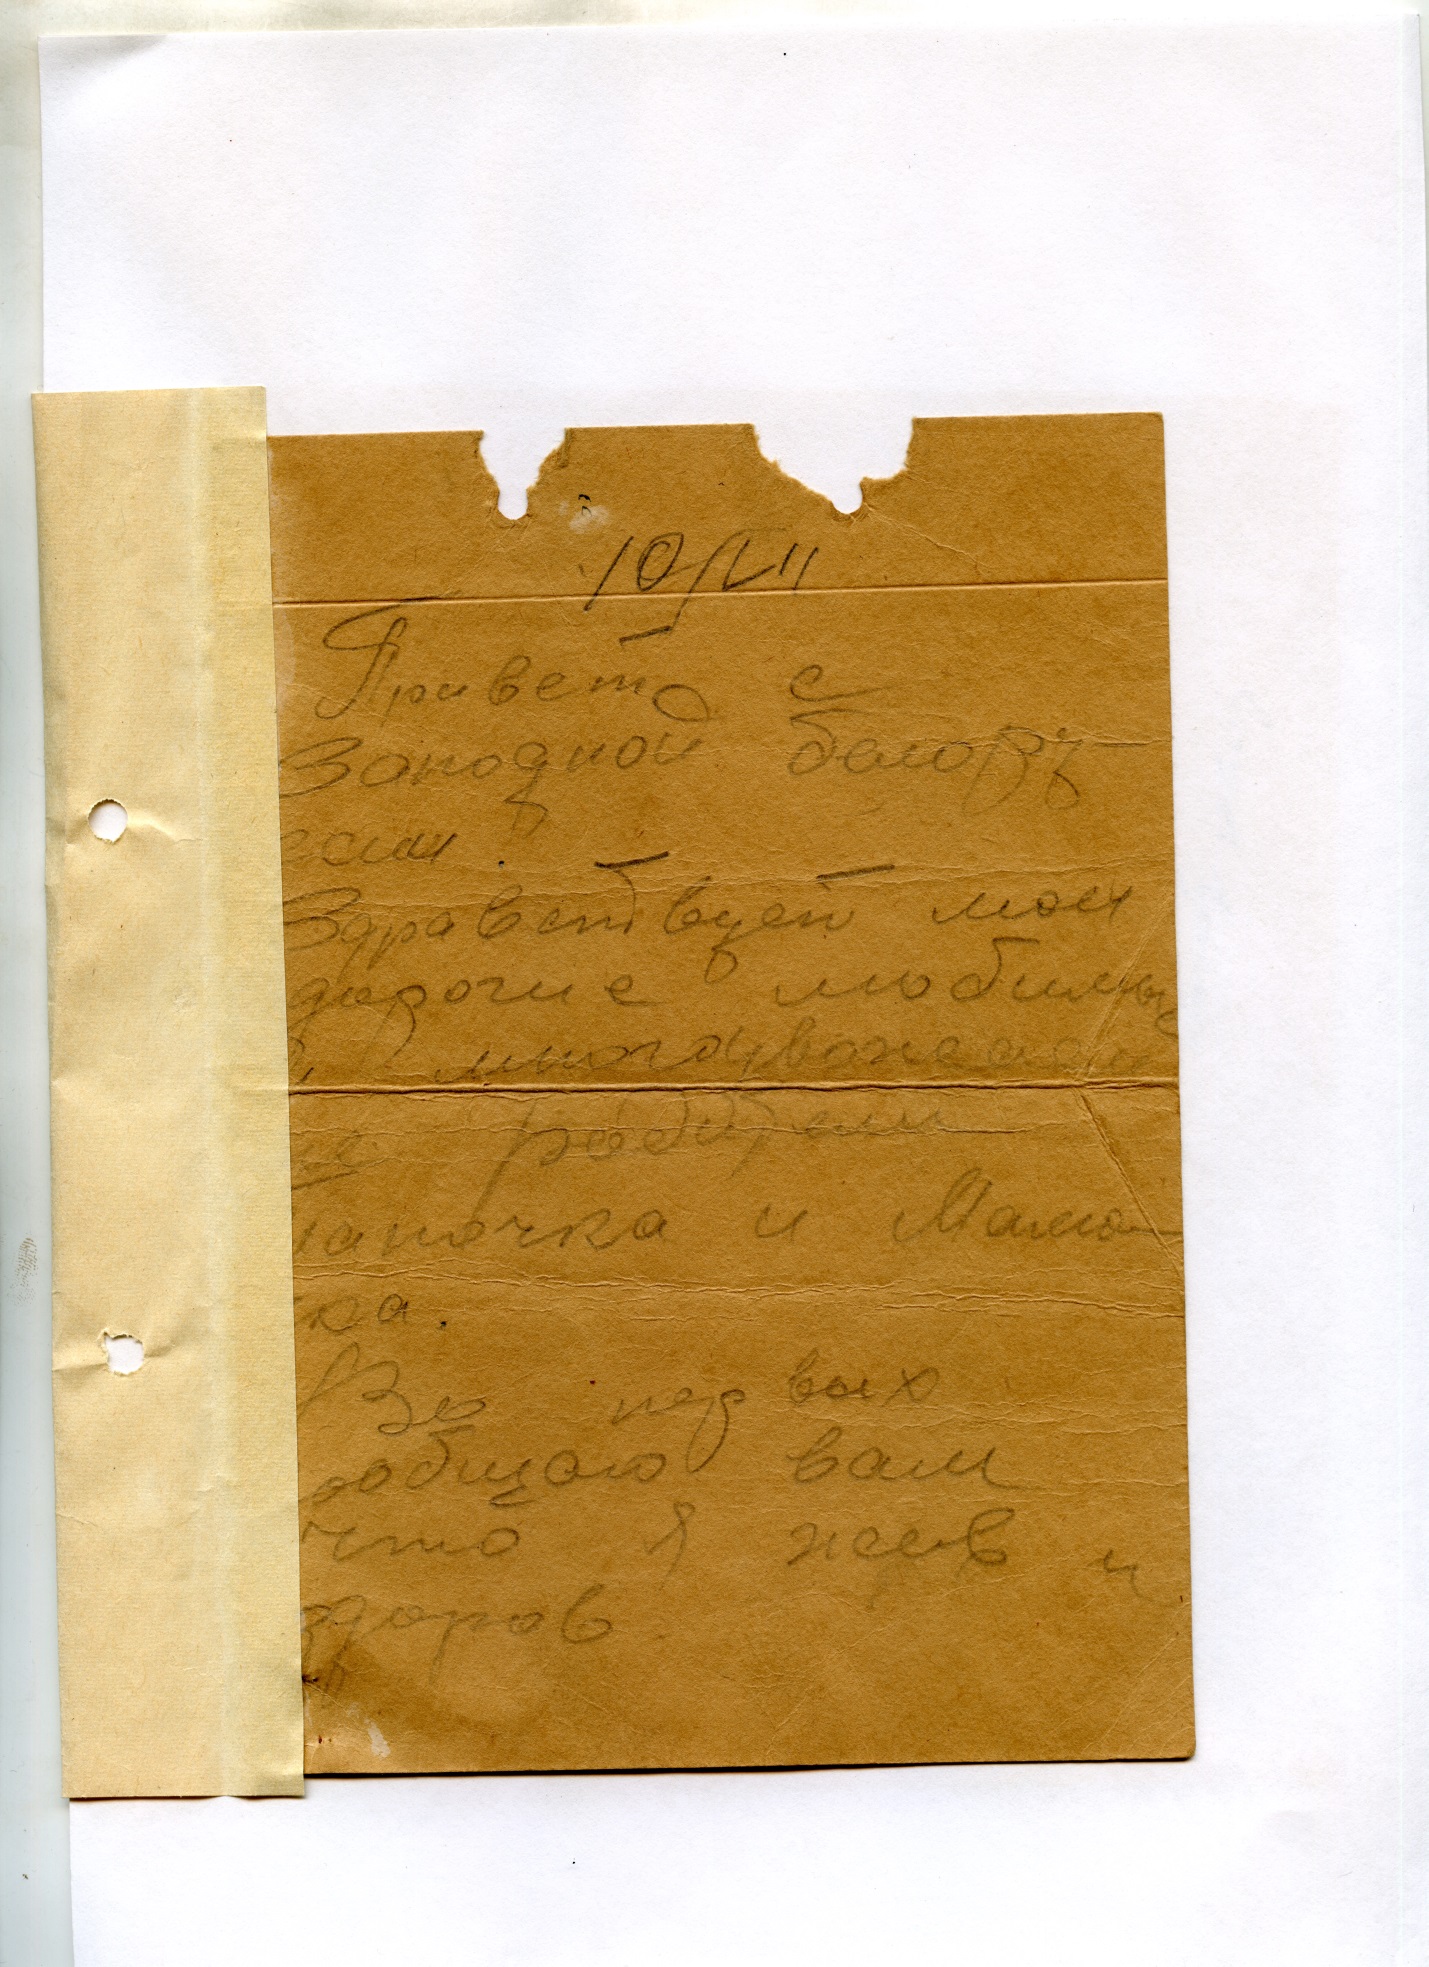 10/VII
Привет с
Западной белору-
сии.
Здравствует мои
дорогие любимы
е, многоуважаемы
ые родители
папочка и Мамо-
чка.
Во первых
сообщаю вам
что я жив и
здоров